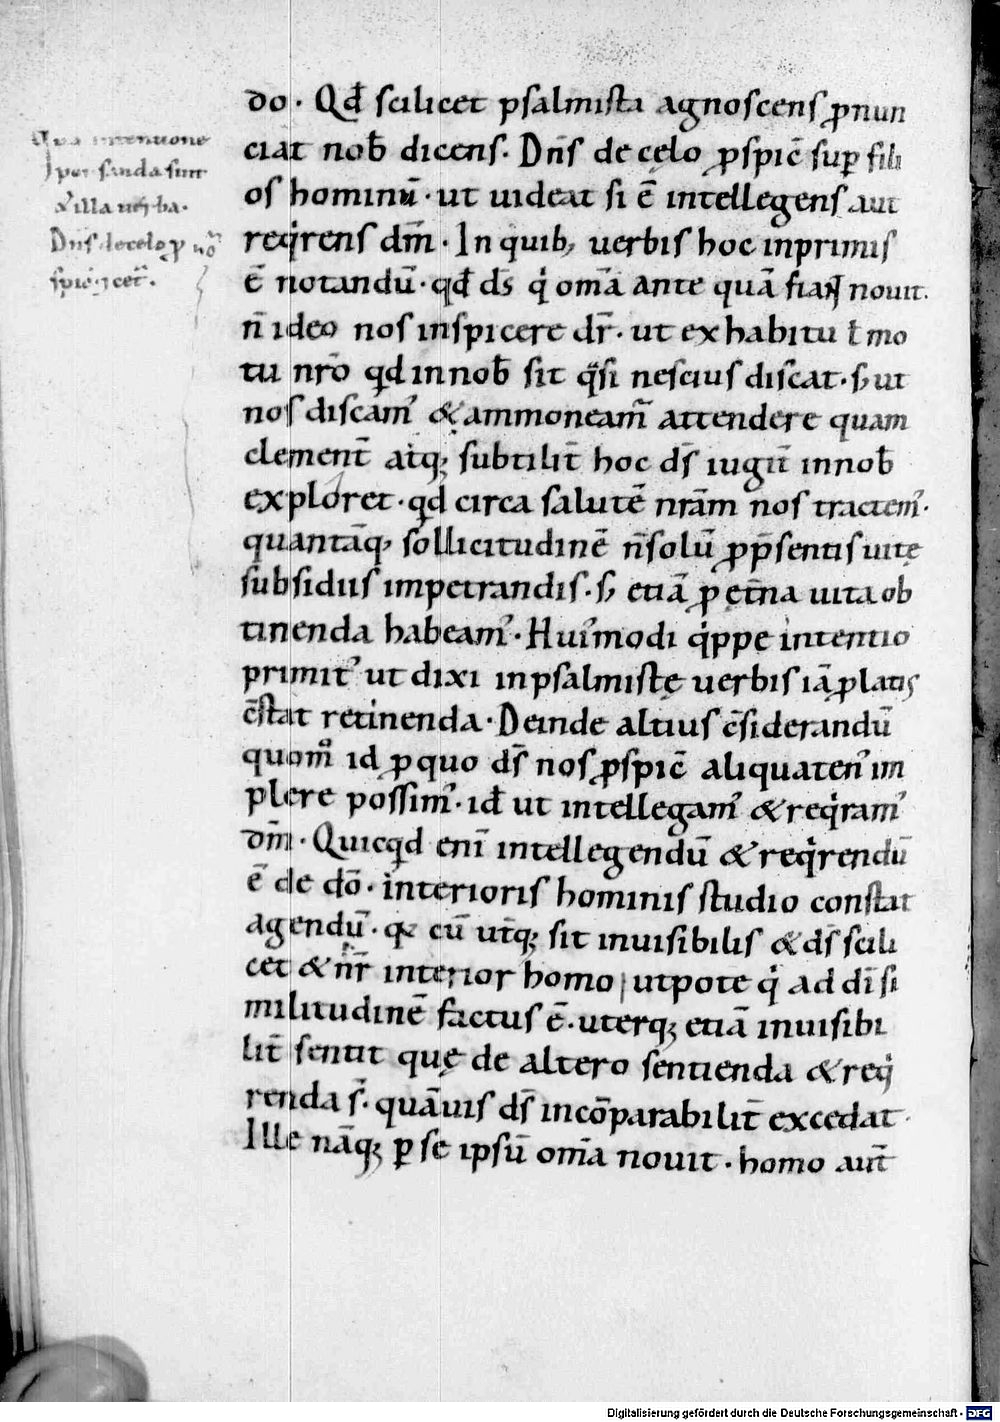 do · Qđ scilicet psalmista agnoscens ꝓnun
ciat nob̄ dicens · Dn̄s de cęlo ꝓspic̄ suꝑ fili
os hominū · ut uideat si ē intellegens aut
reqͥrens dm̄ · In quib; uerbis hoc inprimis
ē notandū · qđ ds̄ qͥ om̄a ante quā fiaɴt nouit ·
n̄ ideo nos inspicere dr̄ · ut ex habitu ł mo
tu nr̄o qd in nob̄ sit qᷓsi nescius discat · s; ut
nos discam᾿ & ammoneam̄ attendere quam
clement̄ atq; subtilit̄ hoc ds̄ iugit̄ innob̄
exploret · qd circa salutē nrām nos tractem᾿ ·
quantāq; sollicitudinē n̄ solū ꝓ p̄sentis uitę
subsidiis impetrandis · s; etiā ꝓ ęt̄na uita ob
tinenda habeam᾿ · Hui᾿modi qͥppe intentio
primit᾿ ut dixi in psalmistę uerbis iā ꝓlatis
c̄stat retinenda · Deinde altius c̄siderandū
quom̊ id ꝓ quo ds̄ nos ꝓspic̄ aliquaten᾿ im
plere possim᾿ · iđ ut intellegam᾿ & reqͥram᾿
dm̄ · Quicqͥd enī intellegendū & reqͥrendū
ē de dō · interioris hominis studio constat
agendū · q; cū ut̄q; sit inuisibilis & ds̄ scili
cet & nr̄ interior homo utpote qͥ ad dī si
militudinē factus ē · uterq; etiā inuisibi
lit̄ sentit quę de altero sentienda & reqͥ
renda s̄ · quāuis ds̄ incōparabilit̄ excedat ·
Ille nāq; ꝑ se ipsū om̄a nouit · homo aut̄
intentione
sunt
& illa uerba ·
Dn̄s de celo ꝓ
spic̄ · & cet̄ ·
Digitalisierung gefördert durch die Deutsche Forschungsgemeinschaft - DFG